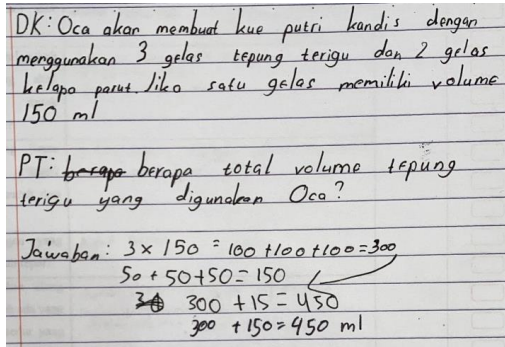 DK: Oca akan membuat kue putri kandis dengan
menggunakan 3 gelas tepung terigu dan 2 gelas
kelapa parut. Jika satu gelas memiliki volume
150 ml
PT: berapa berapa total volume tepung
terigu yang digunakan Oca?
Jawaban: 3 x 150 = 100 + 100 + 100 = 300
50 + 50 + 50 = 150
300 + 15 = 450
300 + 150 = 450 ml